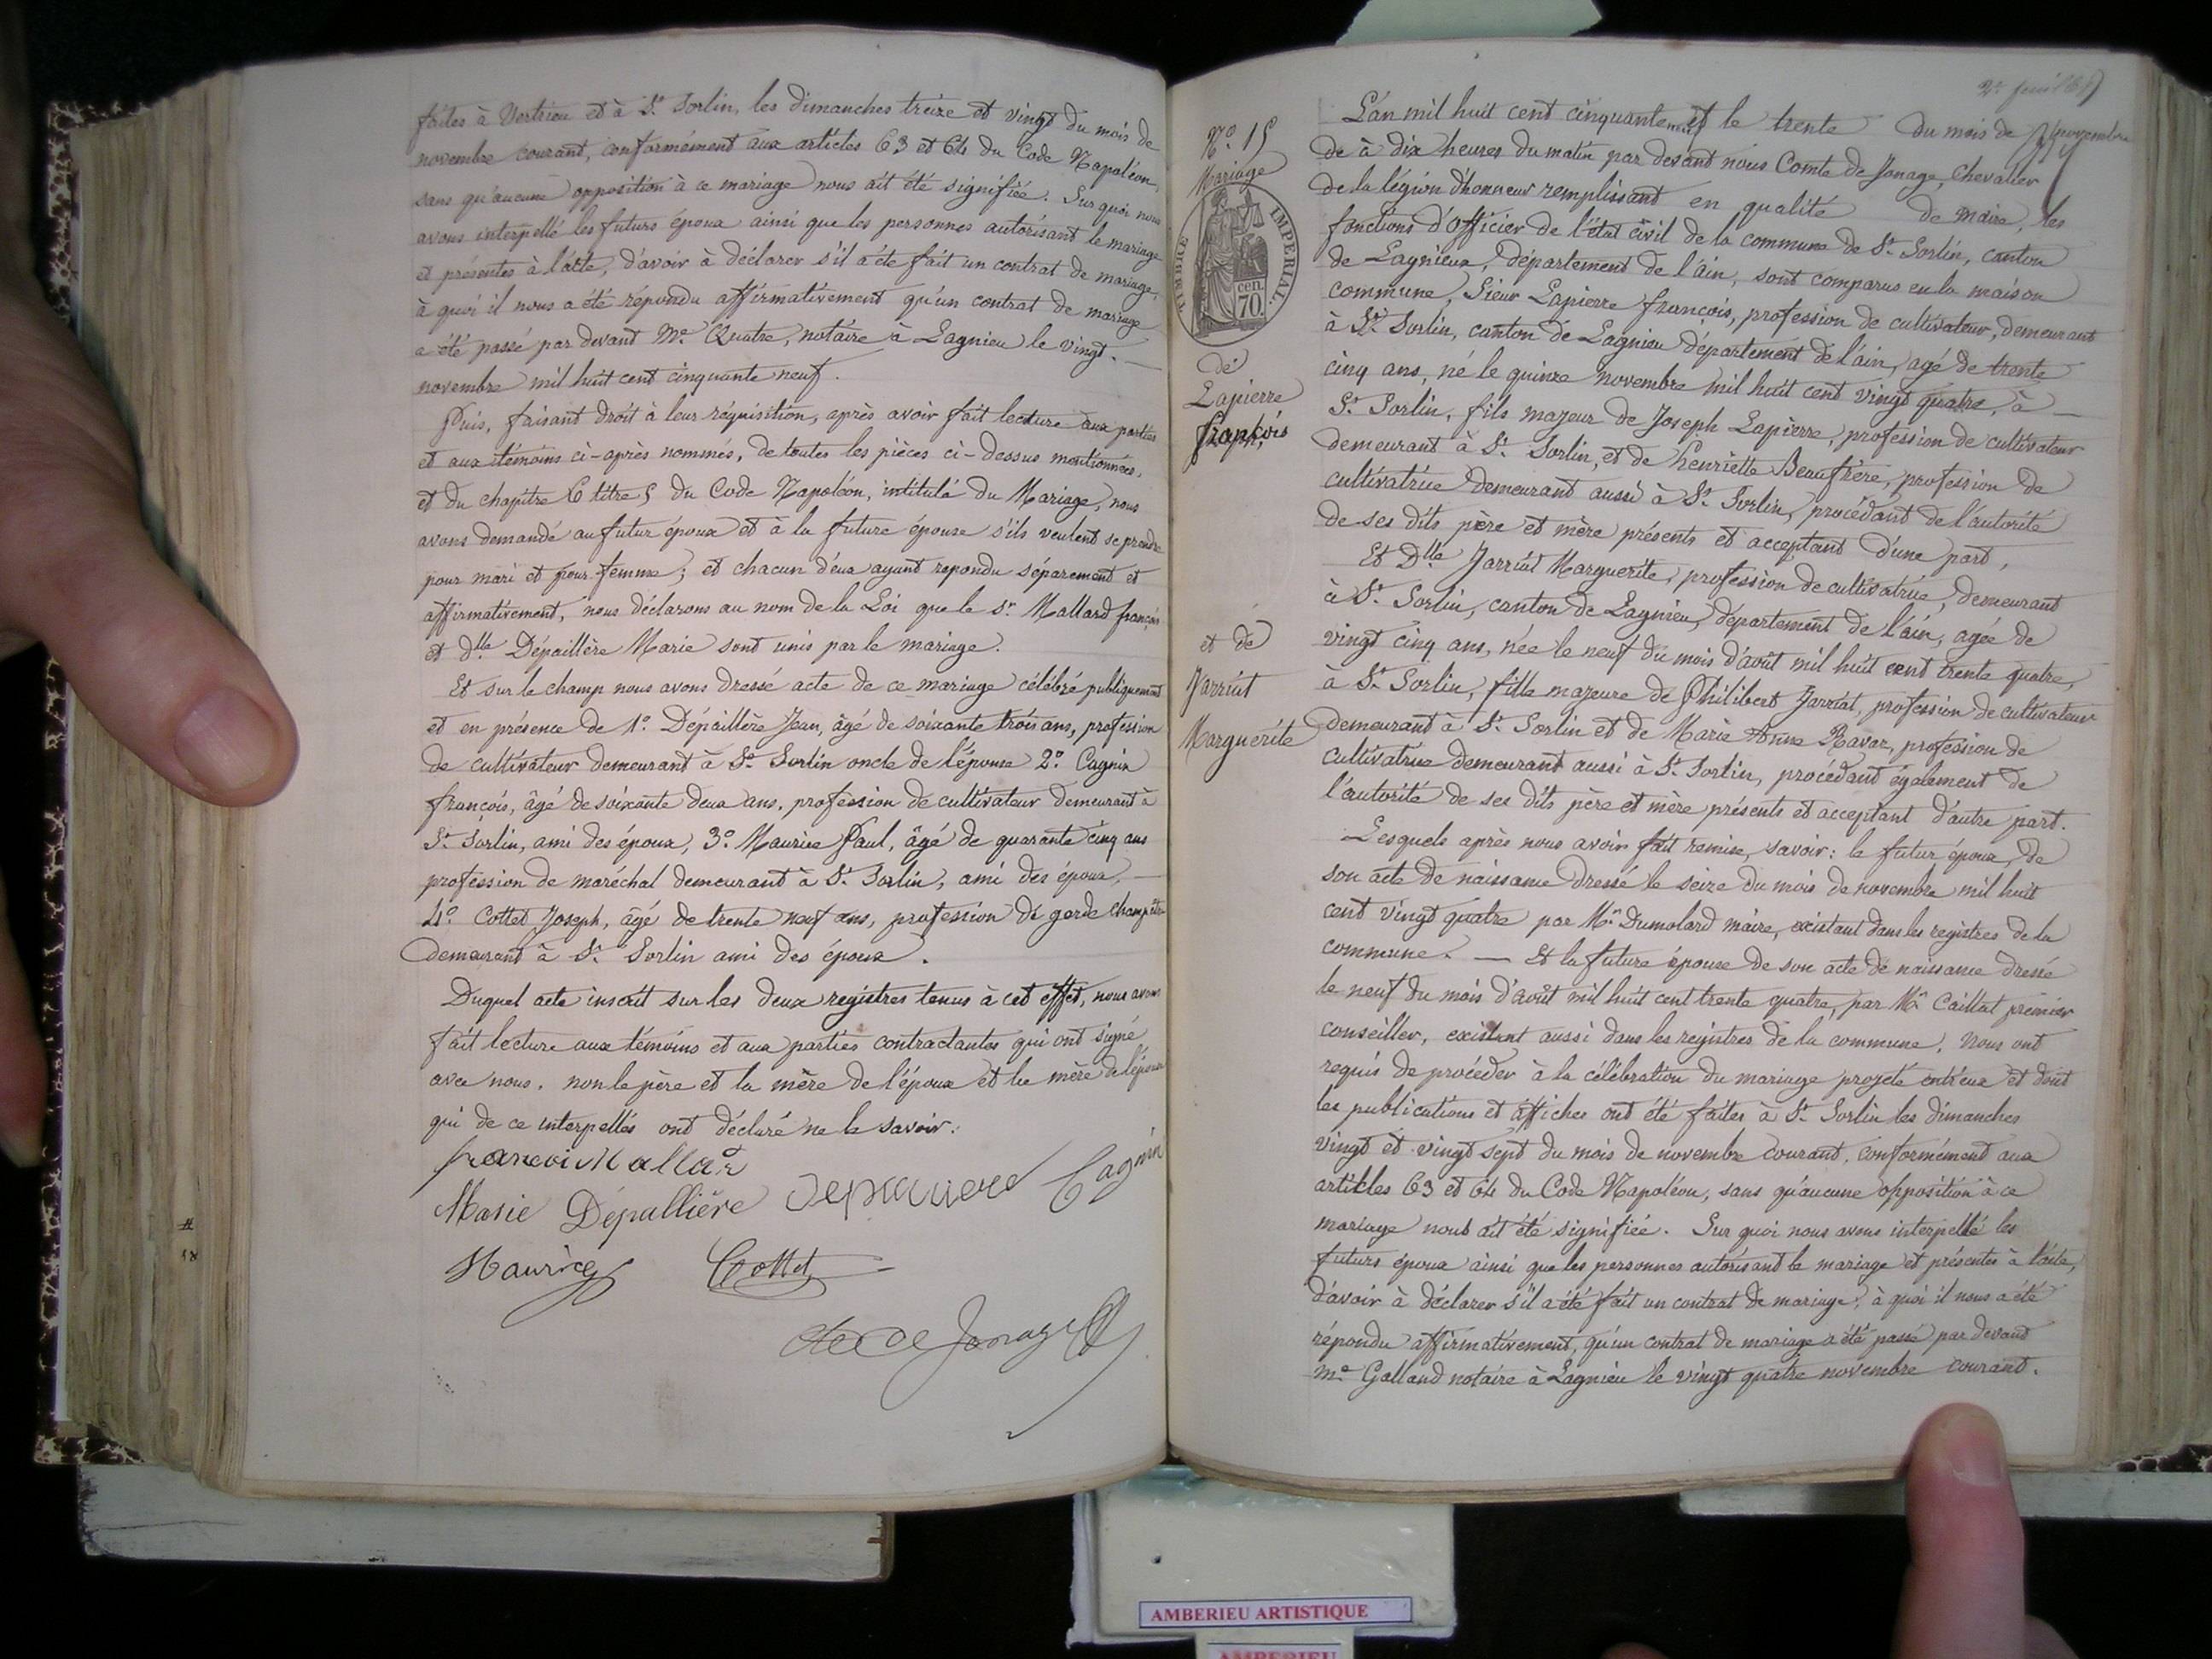 faites à Vertrieu et à St Sorlin, les dimanches treize et vingt du mois de
novembre courant, conformément aux articles 63 et 64 du Code Napoléon,
sans qu'aucune opposition à ce mariage nous ait été signifiée. Sur quoi nous
avons interpellé les futurs époux ainsi que les personnes autorisant le mariage
et présentes à l'acte, d'avoir à déclarer s'il a été fait un contrat de mariage,
à quoi il nous a été répondu affirmativement qu'un contrat de mariage
a été passé par devant Me Quatre, notaire à Lagnieu le vingt
novembre mil huit cent cinquante neuf.
Puis, faisant droit à leur réquisition, après avoir fait lecture aux parties
et aux témoins ci-après nommés, de toutes les pièces ci-dessus mentionnées,
et du chapitre 6 titre 5 du Code Napoléon, intitulé du Mariage, nous
avons demandé au futur époux et à la future épouse s'ils veulent se prendre
pour mari et pour femme; et chacun d'eux ayant repondu séparement et
affirmativement, nous déclarons au nom de la Loi que le sr Mallard françois
et dlle Dépaillère Marie sont unis par le mariage.
Et sur le champ nous avons dressé acte de ce mariage célébré publiquement
et en présence de 1° Dépaillère Jean, âgé de soixante trois ans, profession
de cultivateur demeurant à St Sorlin oncle de l'épouse 2° Cagnin
françois, âgé de soixante deux ans, profession de cultivateur demeurant à
St Sorlin, ami des époux, 3° Maurice Paul, âgé de quarante cinq ans
profession de maréchal demeurant à St Sorlin, ami des époux,
4° Cottet Joseph, âgé de trente neuf ans, profession de garde champêtre
demeurant à St Sorlin ami des époux.
Duquel acte inscrit sur les deux registres tenus à cet effet, nous avons
fait lecture aux témoins et aux parties contractantes qui ont signé
avec nous. non le père et la mère de l'époux et la mère de l'épouse
qui de ce interpellés ont déclaré ne le savoir.
francois Mallar
Marie Dépallière Cagnin
Maurice Cottet
Cte de Jonage
N° 15
Mariage
TIMBRE IMPERIAL
70 cen.
de
Lapierre
françois
et de
Jarriat
Marguerite
L'an mil huit cent cinquante neuf le trente du mois de novembre
de à dix heures du matin par devant nous Comte de Jonage, Chevalier
de la légion d'honneur remplissant en qualité de maire, les
fonctions d'officier de l'état civil de la commune de St Sorlin, canton
de Lagnieux, département de l'ain, sont comparus en la maison
commune, Sieur Lapierre françois, profession de cultivateur, demeurant
à St Sorlin, canton de Lagnieu département de l'ain, agé de trente
cinq ans, né le quinze novembre mil huit cent vingt quatre, à
St Sorlin, fils majeur de Joseph Lapierre, profession de cultivateur
demeurant à St Sorlin, et de henriette Beaufrère, profession de
cultivatrice demeurant aussi à St Sorlin, procédant de l'autorité
de ses dits père et mère présents et acceptant d'une part,
Et Dlle Jarriat Marguerite, profession de cultivatrice, demeurant
à St Sorlin, canton de Lagnieu, département de l'ain, agée de
vingt cinq ans, née le neuf du mois d'août mil huit cent trente quatre,
à St Sorlin, fille majeure de Philibert Jarriat, profession de cultivateur
demeurant à St Sorlin et de Marie Anne Ravaz, profession de
cultivatrice demeurant aussi à St Sorlin, procédant également de
l'autorité de ses dits père et mère présents et acceptant d'autre part.
Lesquels après nous avoir fait remise, savoir: le futur époux, de
son acte de naissance dressé le seize du mois de novembre mil huit
cent vingt quatre par Mr Dumolard maire, existant dans les registres de la
commune. — Et la future épouse de son acte de naissance dressé
le neuf du mois d'août mil huit cent trente quatre, par Mr Caillat premier
conseiller, existant aussi dans les registres de la commune. Nous ont
requis de procéder à la célébration du mariage projeté entr'eux et dont
les publications et affiches ont été faites à St Sorlin les dimanches
vingt et vingt sept du mois de novembre courant, conformément aux
articles 63 et 64 du Code Napoléon, sans qu'aucune opposition à ce
mariage nous ait été signifiée. Sur quoi nous avons interpellé les
futurs époux ainsi que les personnes autorisant le mariage et présentes à l'acte,
d'avoir à déclarer s'il a été fait un contrat de mariage, à quoi il nous a été
répondu affirmativement, qu'un contrat de mariage a été passé par devant
Me Galland notaire à Lagnieu le vingt quatre novembre courant.
AMBERIEU ARTISTIQUE
AMBERIEU